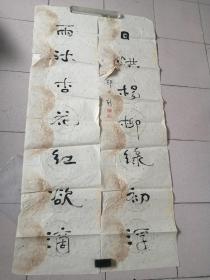 日烘楊柳綠初深
雨沐杏花紅欲滴